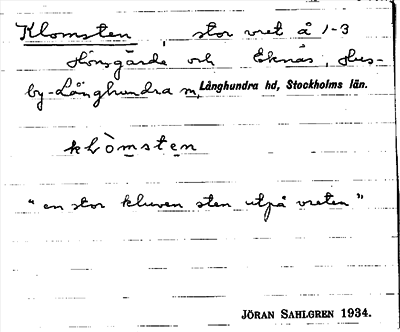 Klomsten, stor vret å 1-3
Hönsgärde och Eknäs, Hus-
by-Långhundra sn, Långhundra hd, Stockholms län.
klòmsten
"en stor kluven sten utpå vreten"
JÖRAN SAHLGREN 1934.